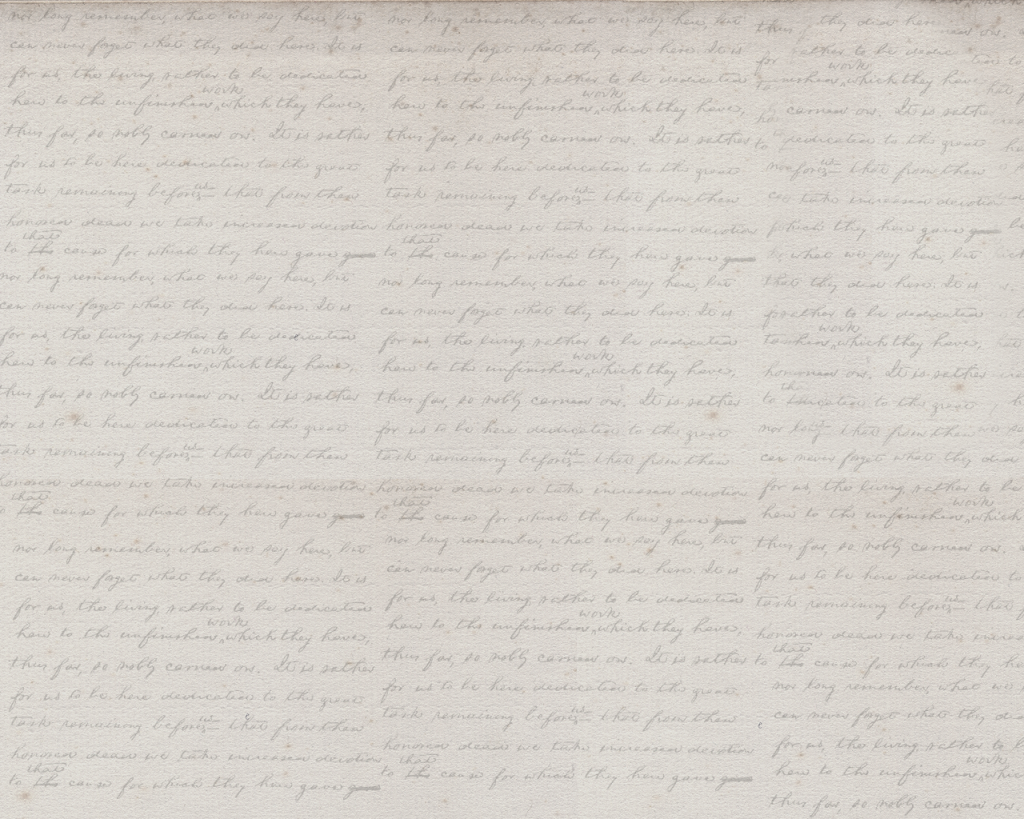 nor long remember, what we say here, but
can never forget what they did here. It is
for us, the living rather to be dedicated
work
here to the unfinished which they have,
thus far, so nobly carried on. It is rather
for us to be here, dedicated to the great
task remaining before us— that from these
honored dead we take increased devotion
that
to the cause for which they here gave
nor long remember, what we say here, but
can never forget what they did here. It is
for us, the living rather to be dedicated
work
here to the unfinished which they have,
thus far, so nobly carried on. It is rather
for us to be here dedicated to the great
task remaining before us— that from these
honored dead we take increased devotion
that
to the cause for which they here gave
nor long remember, what we say here, but
can never forget what they did here. It is
for us, the living rather to be dedicated
work
here to the unfinished which they have,
thus far, so nobly carried on. It is rather
for us to be here dedicated to the great
task remaining before us— that from these
honored dead we take increased devotion
that
to the cause for which they here gave
nor long remember, what we say here, but
can never forget what they did here. It is
for us, the living rather to be dedicated
work
here to the unfinished which they have,
thus far, so nobly carried on. It is rather
for us to be here dedicated to the great
task remaining before us— that from these
honored dead we take increased devotion
that
to the cause for which they here gave
nor long remember, what we say here, but
can never forget what they did here. It is
for us, the living rather to be dedicated
work
here to the unfinished which they have,
thus far, so nobly carried on. It is rather
for us to be here dedicated to the great
task remaining before us— that from these
honored dead we take increased devotion
that
to the cause for which they here gave
nor long remember, what we say here, but
can never forget what they did here. It is
for us, the living rather to be dedicated
work
here to the unfinished which they have,
thus far, so nobly carried on. It is rather
for us to be here, dedicated to the great
task remaining before us— that from these
honored dead we take increased devotion
that
to the cause for which they here gave
thus they did here
for rather to be
work
which they have
carried on. It is
to dedicated to the great
that from these
take increased devotion
which they here gave
what we say here, but
that they did here. It is
rather to be dedicated
work
which they have,
carried on. It is rather
to the great
that from these
can never forget what they did
for us, the living rather to be
work
here to the unfinished which
thus far, so nobly carried on.
for us to be here dedicated to
task remaining before us— that
honored dead we take
that
to the cause for which they
nor long remember, what we
can never forget what they
for us, the living rather to be
work
here to the unfinished
thus far, so nobly carried on.